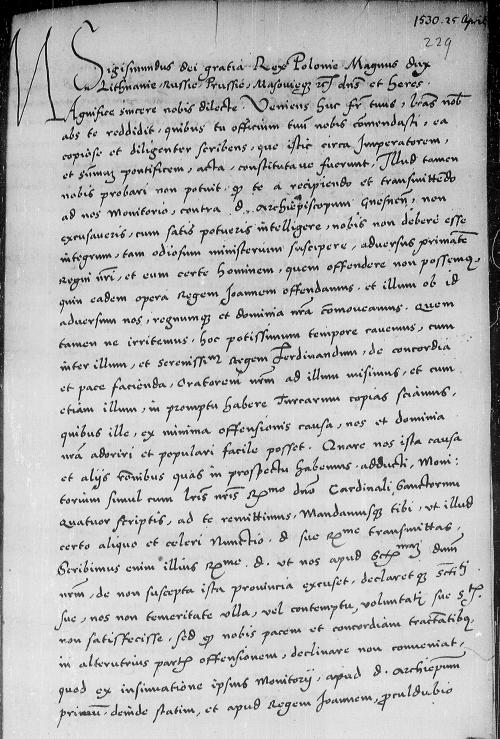 1530. 25 April
229
Sigismundus dei gratia Rex Polonie Magnus dux
Lithuanie Russie Prussie, Masovięqȝ etc dns et heres.
Magnifice sincere nobis dilecte. Veniens huc fr tuus, lras nob
abs te reddidit, quibus tu officium tuũ nobis comendasti, ea
copiose et diligenter scribens, que istic circa Imperatorem,
et sumũ pontificem, acta, constitutave fuerunt, Illud tamen
nobis probari non potuit, qȝ te a recipiendo et transmittẽdo
ad nos Monitorio, contra .d. Archiepiscopum Gnesneñ, non
excusaveris, cum satis potueris intelligere, nobis non debere esse
integrum, tam odiosum ministerium suscipere, adversus primatẽ
Regni nri, et eum certe hominem, quem offendere non possemqȝ,
quin eadem opera Regem Joannem offendamus, et illum ob id
adversum nos, regnumqȝ et dominia nra comoveamus. Quem
tamen ne irritemus, hoc potissimum tempore cavemus, cum
inter illum, et serenissimȝ Regem Ferdinandum, de concordia
et pace facienda, Oratorem nrm ad illum misimus, et cum
etiam illum, in promptu habere Turcarum copias sciamus,
quibus ille, ex minima offensionis causa, nos et dominia
nra adoriri et populari facile posset. Quare nos ista causa
et alijs rõnibus quas in prospectu habemus, adducti, Moni:
torium simul cum lris nris Rmo dno Cardinali Sanctorum
Quatuor scriptis, ad te remittimus, Mandamusqȝ tibi, ut illud
certo aliquo et celeri Nunctio .d. sue Rme transmittas,
Scribimus enim illius Rme. d. ut nos apud Sctmum dnm
nrm, de non suscepta ista provincia excuset, declaretqȝ Scti
sue, nos non temeritate ulla, vel contemptu, voluntati sue Sti
non satisfecisse, sed qȝ nobis pacem et concordiam tractatibqȝ,
in alterutrius partis offensionem, declinare non conveniat,
quod ex insinuatione ipsius Monitorij, apud .d. Archiepum
primũ. deinde statim, et apud Regem Joannem, proculdubio